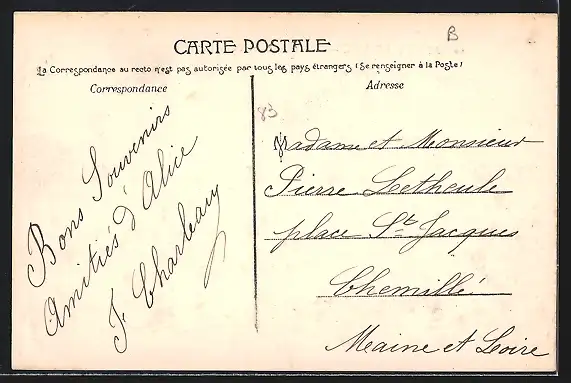 B
CARTE POSTALE
La Correspondance au recto n'est pas autorisée par tous les pays étrangers (Se renseigner à la Poste)
Correspondance
Adresse
83
Bons Souvenirs
Amitiés d'Alice
F. Charleaux
Madame et Monsieur
Pierre Letheule
place St Jacques
Chemillé
Maine et Loire